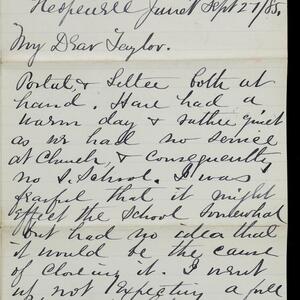 Hespeler Junct Sept 27/85.
My Dear Taylor.
Postal, & Letter both at
hand. Have had a
warm day & rather quiet
as we had no service
at Church, & consequently
no S. School. I was
fearful that it might
effect the School somewhat
but had no idea that
it would be the cause
of closing it. I went
up, not expecting a full